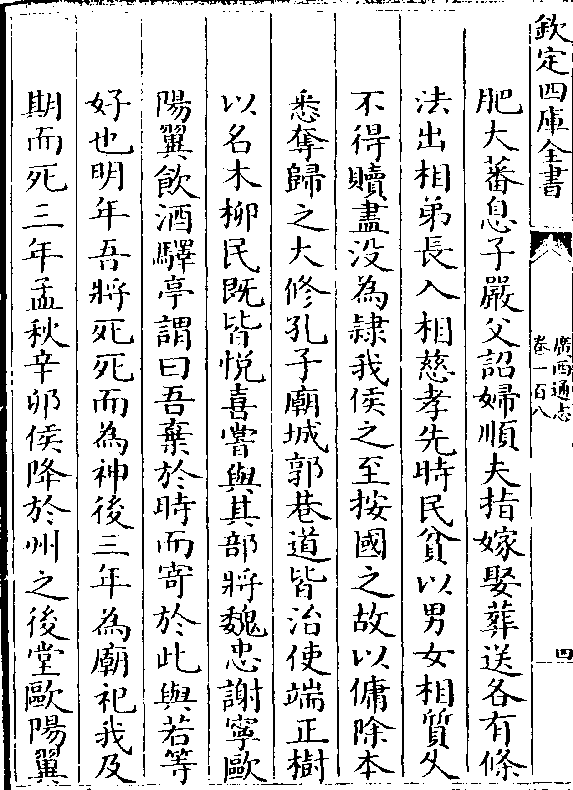 欽定四庫全書
廣西通志
卷一百八
四
肥大蕃息子嚴父詔婦順夫指嫁娶葬送各有條
法出相弟長入相慈孝先時民貧以男女相質久
不得贖盡没為隷我侯之至按國之故以傭除本
悉奪歸之大修孔子廟城郭巷道皆治使端正樹
以名木栁民既皆悦喜嘗與其部將魏忠謝寧歐
陽翼飲酒驛亭謂曰吾棄於時而寄於此與若等
好也明年吾將死死而為神後三年為廟祀我及
期而死三年孟秋辛夘侯降於州之後堂歐陽翼